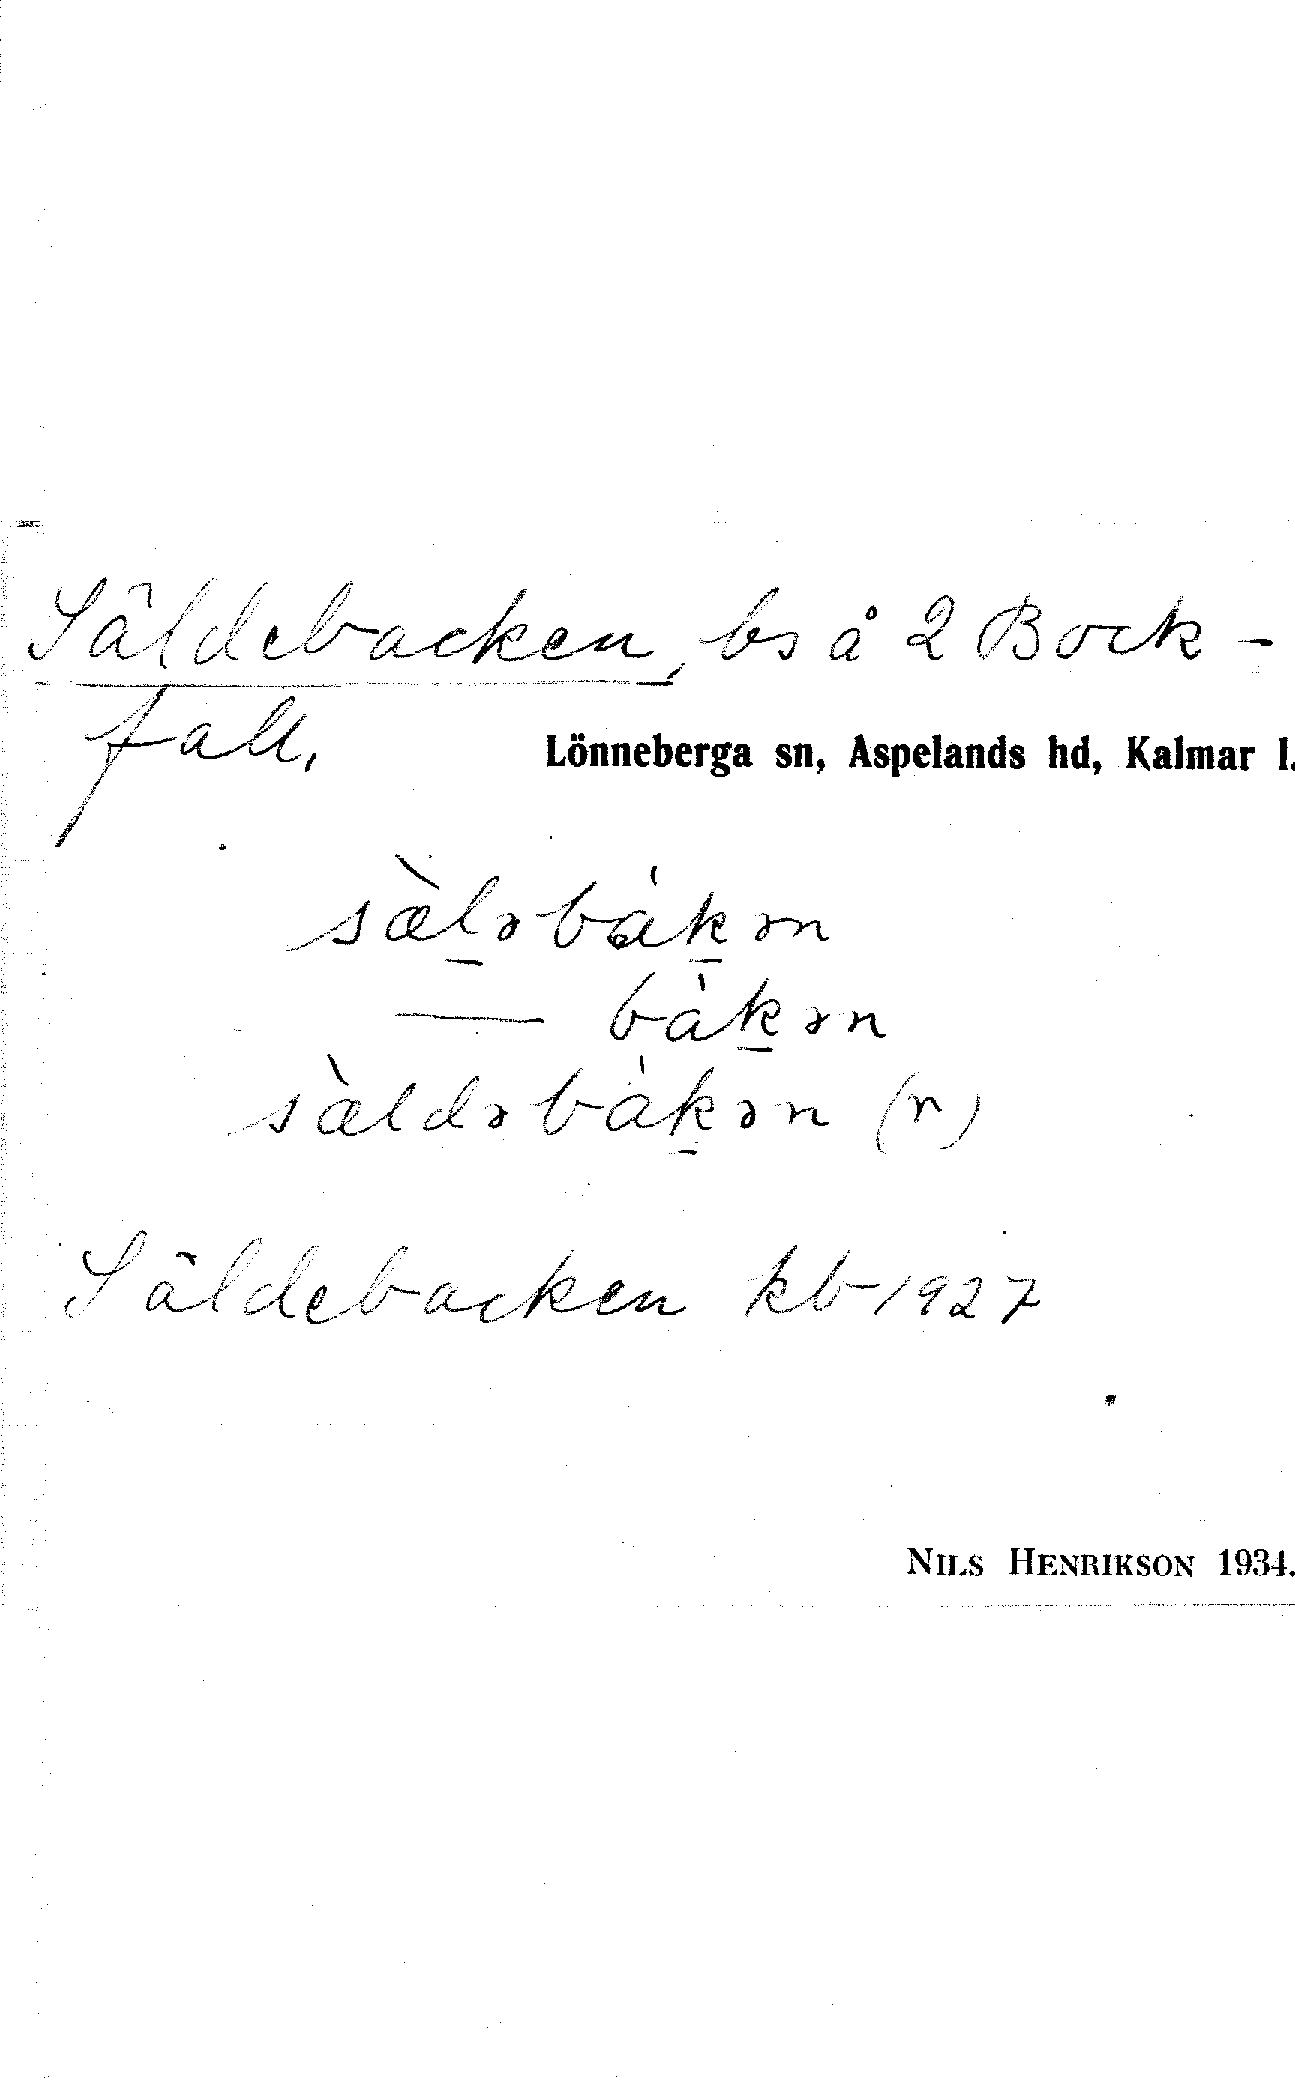 Säldebacken, bs å 2 Bock-
fall,
Lönneberga sn, Aspelands hd, Kalmar l.
sæ̀l̠əbák̠ən
— bàk̠ən
sæ̀ldəbák̠ən (r)
Säldebacken kb 1927
NILS HENRIKSON 1934.